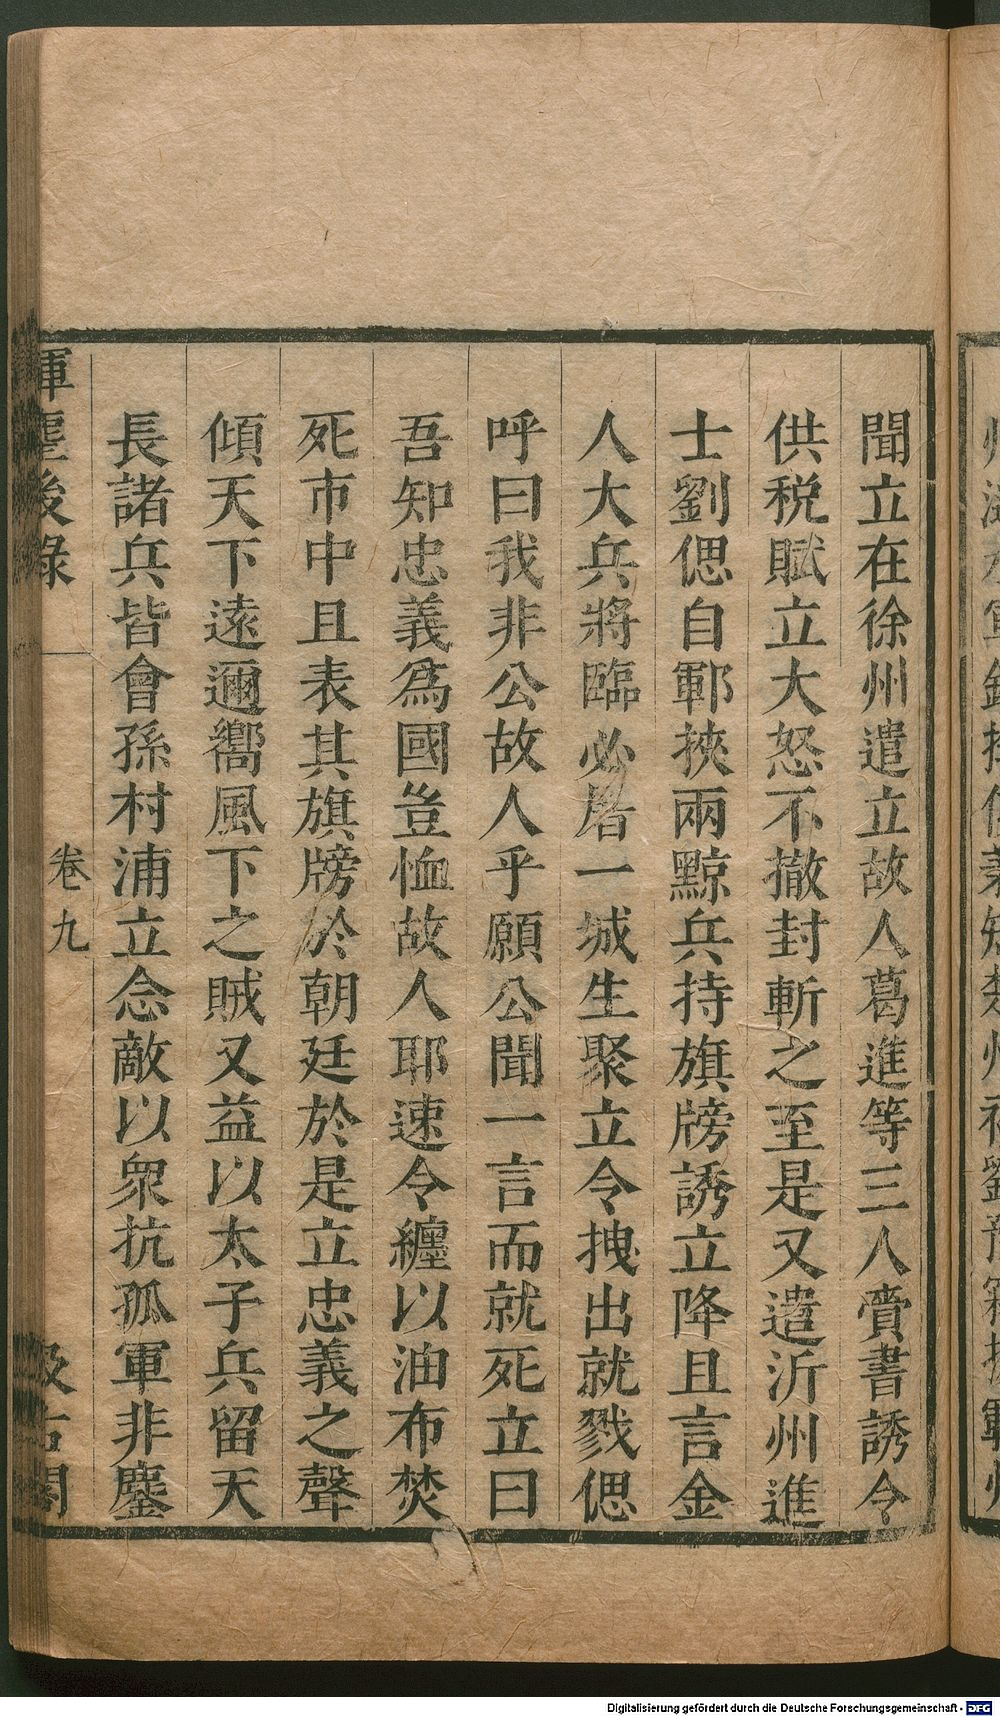 聞立在徐州遣立故人葛進等三人賫書誘令
供税賦立大怒不撤封斬之至是又遣沂州進
士劉偲自鄆挾兩黥兵持旗牓誘立降且言金
人大兵將臨必屠一城生聚立令拽出就戮偲
呼曰我非公故人乎願公聞一言而就死立曰
吾知忠義爲國豈恤故人耶速令纏以油布焚
死市中且表其旗牓於朝廷於是立忠義之聲
傾天下遠邇嚮風下之賊又益以太子兵留天
長諸兵皆會孫村浦立念敵以衆抗孤軍非鏖
揮麈後錄
卷九
汲古閣
Digitalisierung gefördert durch die Deutsche Forschungsgemeinschaft - DFG